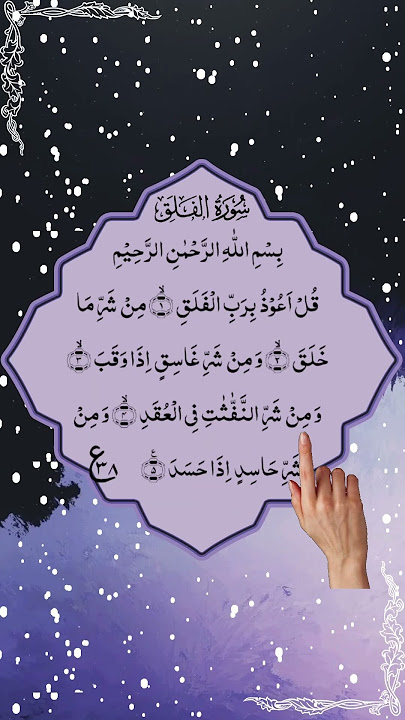 سُورَةُ الفَلَقِ
بِسْمِ اللهِ الرَّحْمٰنِ الرَّحِيْمِ
قُلْ اَعُوْذُ بِرَبِّ الْفَلَقِ ۙ﴿۱﴾ مِنْ شَرِّ مَا
خَلَقَ ۙ﴿۲﴾ وَمِنْ شَرِّ غَاسِقٍ اِذَا وَقَبَ ۙ﴿۳﴾
وَمِنْ شَرِّ النَّفّٰثٰتِ فِی الْعُقَدِ ۙ﴿۴﴾ وَمِنْ
شَرِّ حَاسِدٍ اِذَا حَسَدَ ﴿۵﴾ ع ۳۸